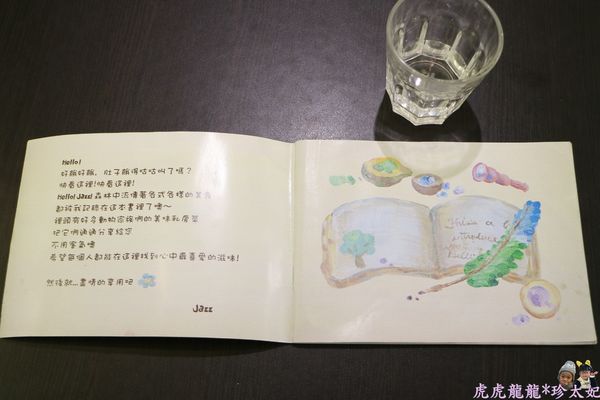 Hello!
好餓好餓, 肚子餓得咕咕叫了嗎?
快看這裡!快看這裡!
Hello Jazz! 森林中流傳著各式各樣的美食
都被我記錄在這本書裡了噢~
裡頭有好多動物家族們的美味私房菜
把它們通通分享給您
不用客氣噢
希望每個人都能在這裡找到心中最喜愛的滋味!
然後就...盡情的享用吧
Jazz
introduce
Hello
虎虎龍龍*珍太妃